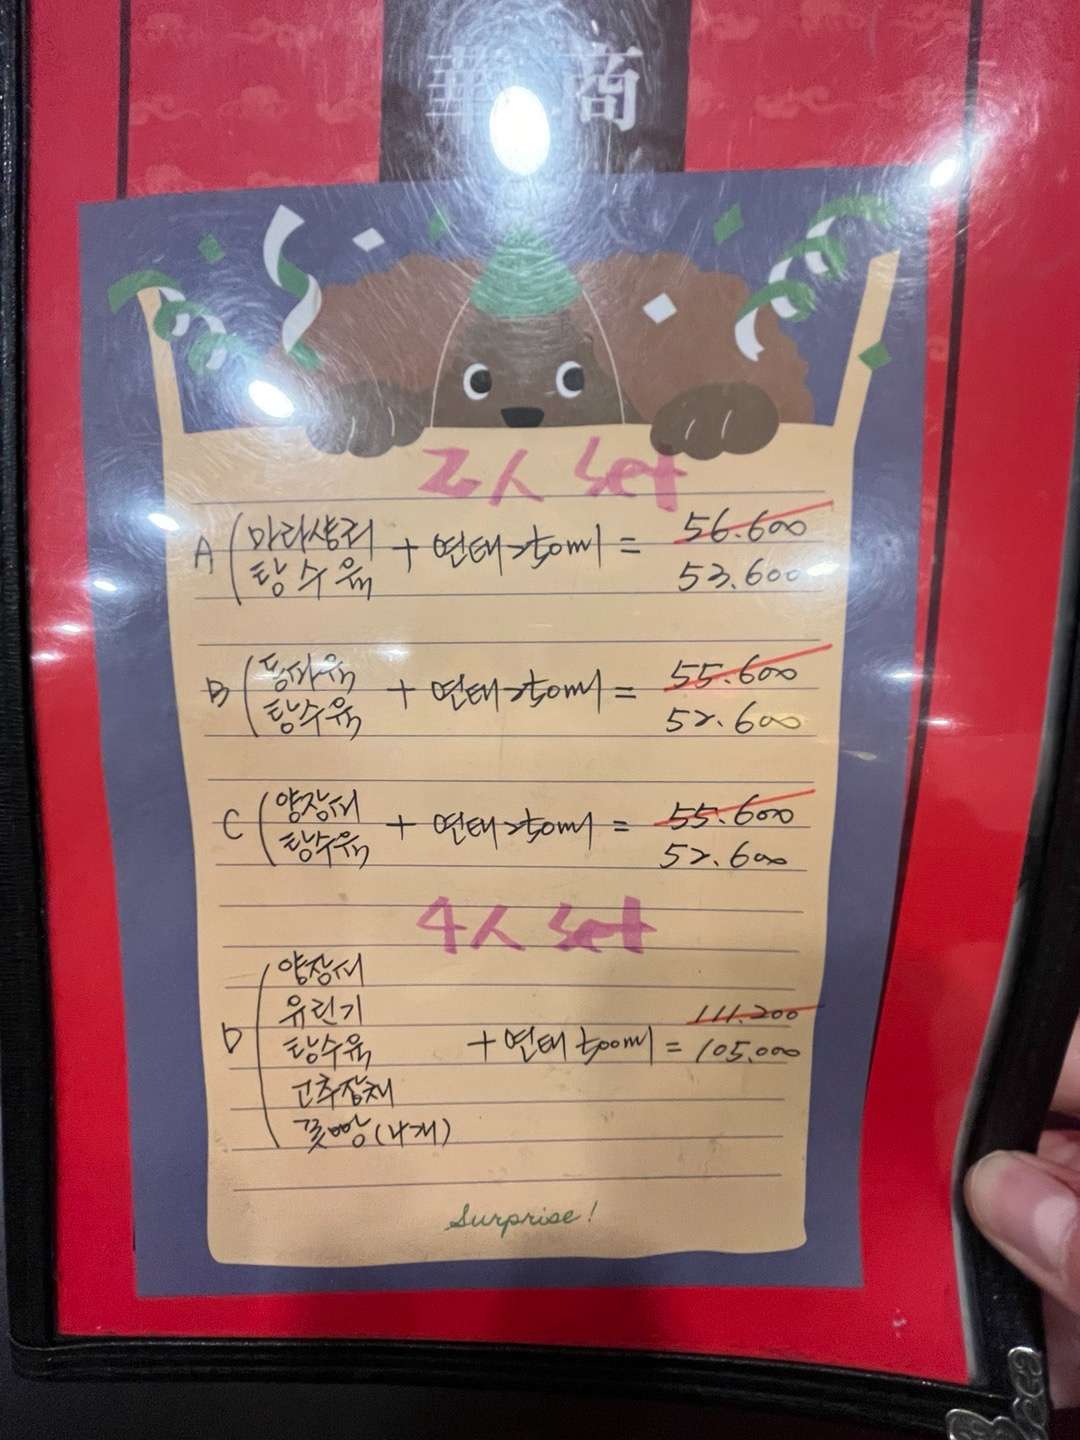 華商
2人 set
A ( 마라샹궈
탕수육 + 연태 250ml = 56.600
53.600
B ( 동파육
탕수육 + 연태 250ml = 55.600
52.600
C ( 양장피
탕수육 + 연태 250ml = 55.600
52.600
4人 set
D ( 양장피
유린기
탕수육 + 연태 500ml = 111.200
105.000
고추잡채
꽃빵 (4개)
Surprise!